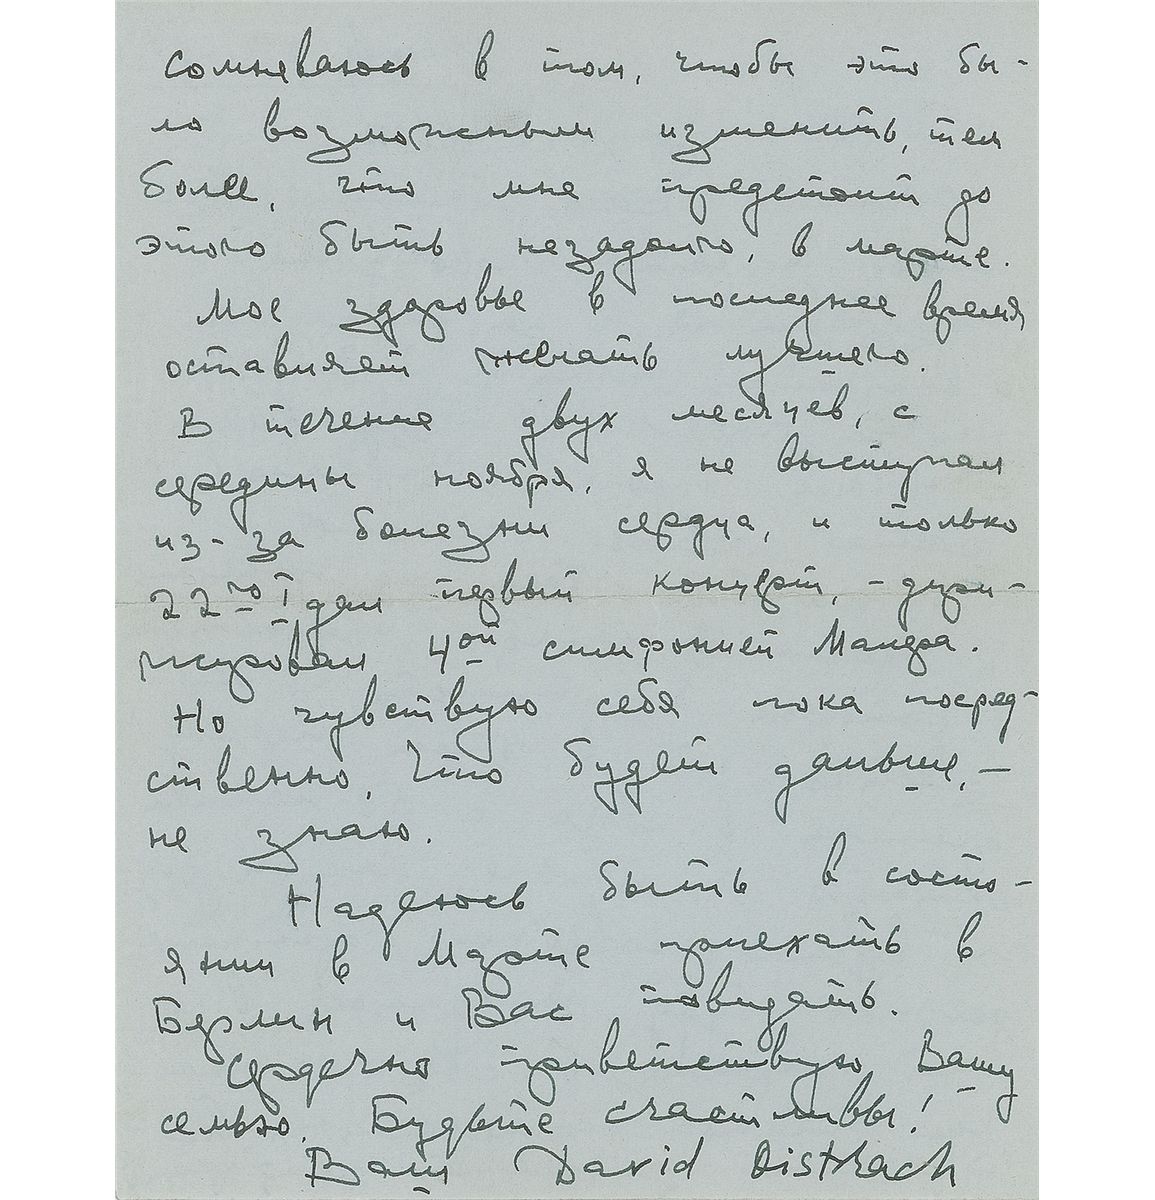 сомневаюсь в том, чтобы это бы-
ло возможным изменить, тем
более, что мне предстоит до
этого быть незадолго, в марте.
Мое здоровье в последнее время
оставляет желать лучшего.
В течение двух месяцев, с
середины ноября, я не выступал
из-за болезни сердца, и только
22го I дал первый концерт, - дири-
жировал 4ой симфонией Малера.
Но чувствую себя пока посред-
ственно. Что будет дальше, —
не знаю.
Надеюсь быть в состо-
янии в Марте приехать в
Берлин и Вас повидать.
Сердечно приветствую Вашу
семью. Будьте счастливы!
Ваш David Oistrach